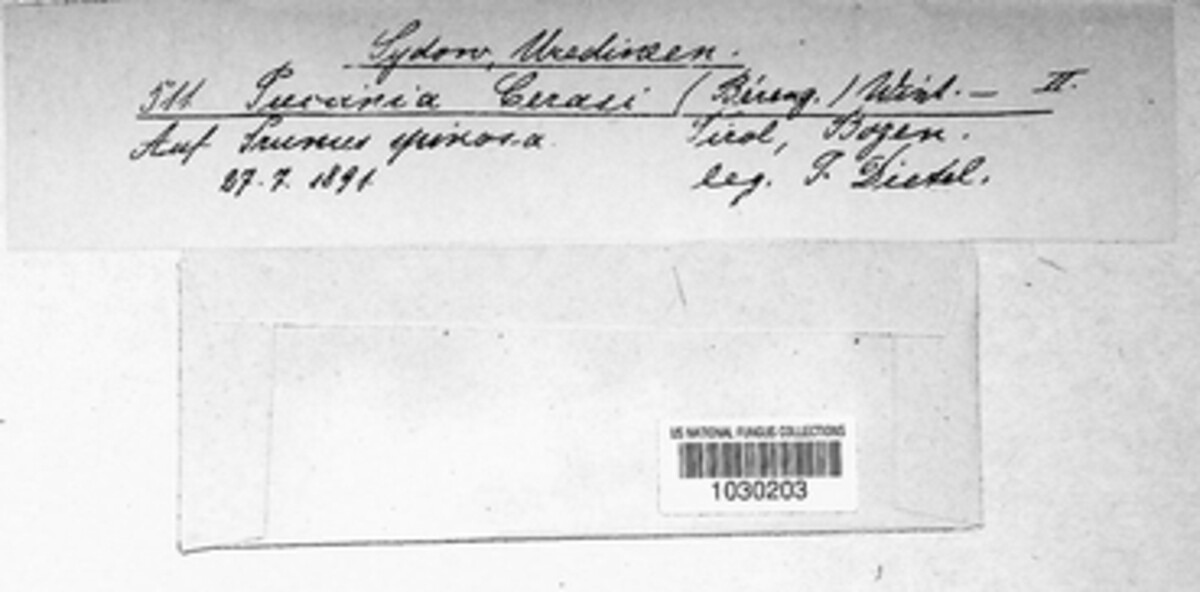 Sydow, Uredineen.
511 Puccinia Cerasi (Béreng.) Wint. — II.
Auf Prunus spinosa. Tirol, Bozen.
27. 7. 1891 leg. P. Dietel.
US NATIONAL FUNGUS COLLECTIONS
1030203